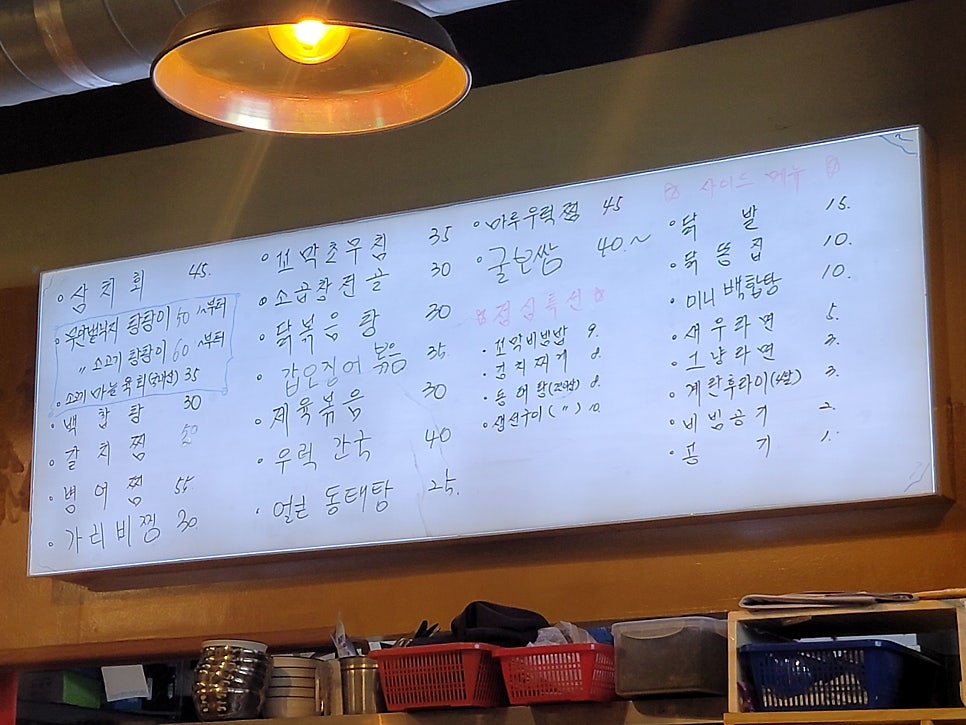 • 삼치회 45.
• 무안뻘낙지 탕탕이 50 ~부터
" 소고기 탕탕이 60 ~부터
• 소고기 마늘 육회(국내산) 35
• 백합탕 30
• 갈치찜 50
• 병어찜 55.
• 가리비찜 30
• 꼬막초무침 35
• 소곱창전골 30
• 닭볶음탕 30
• 갑오징어볶음 35.
• 제육볶음 30
• 우럭간국 40
• 얼큰동태탕 25.
• 마루우럭찜 45
• 굴보쌈 40.~
점심특선
• 꼬막비빔밥 9.
• 김치찌개 8.
• 동태탕 8.
• 생선구이 ( " ) 10.
사이드 메뉴
• 닭발 15.
• 닭똥집 10.
• 미니백합탕 10.
• 새우라면 5.
• 그냥라면 3.
• 계란후라이(4알) 3.
• 비빔공기 2.
• 공기 1.